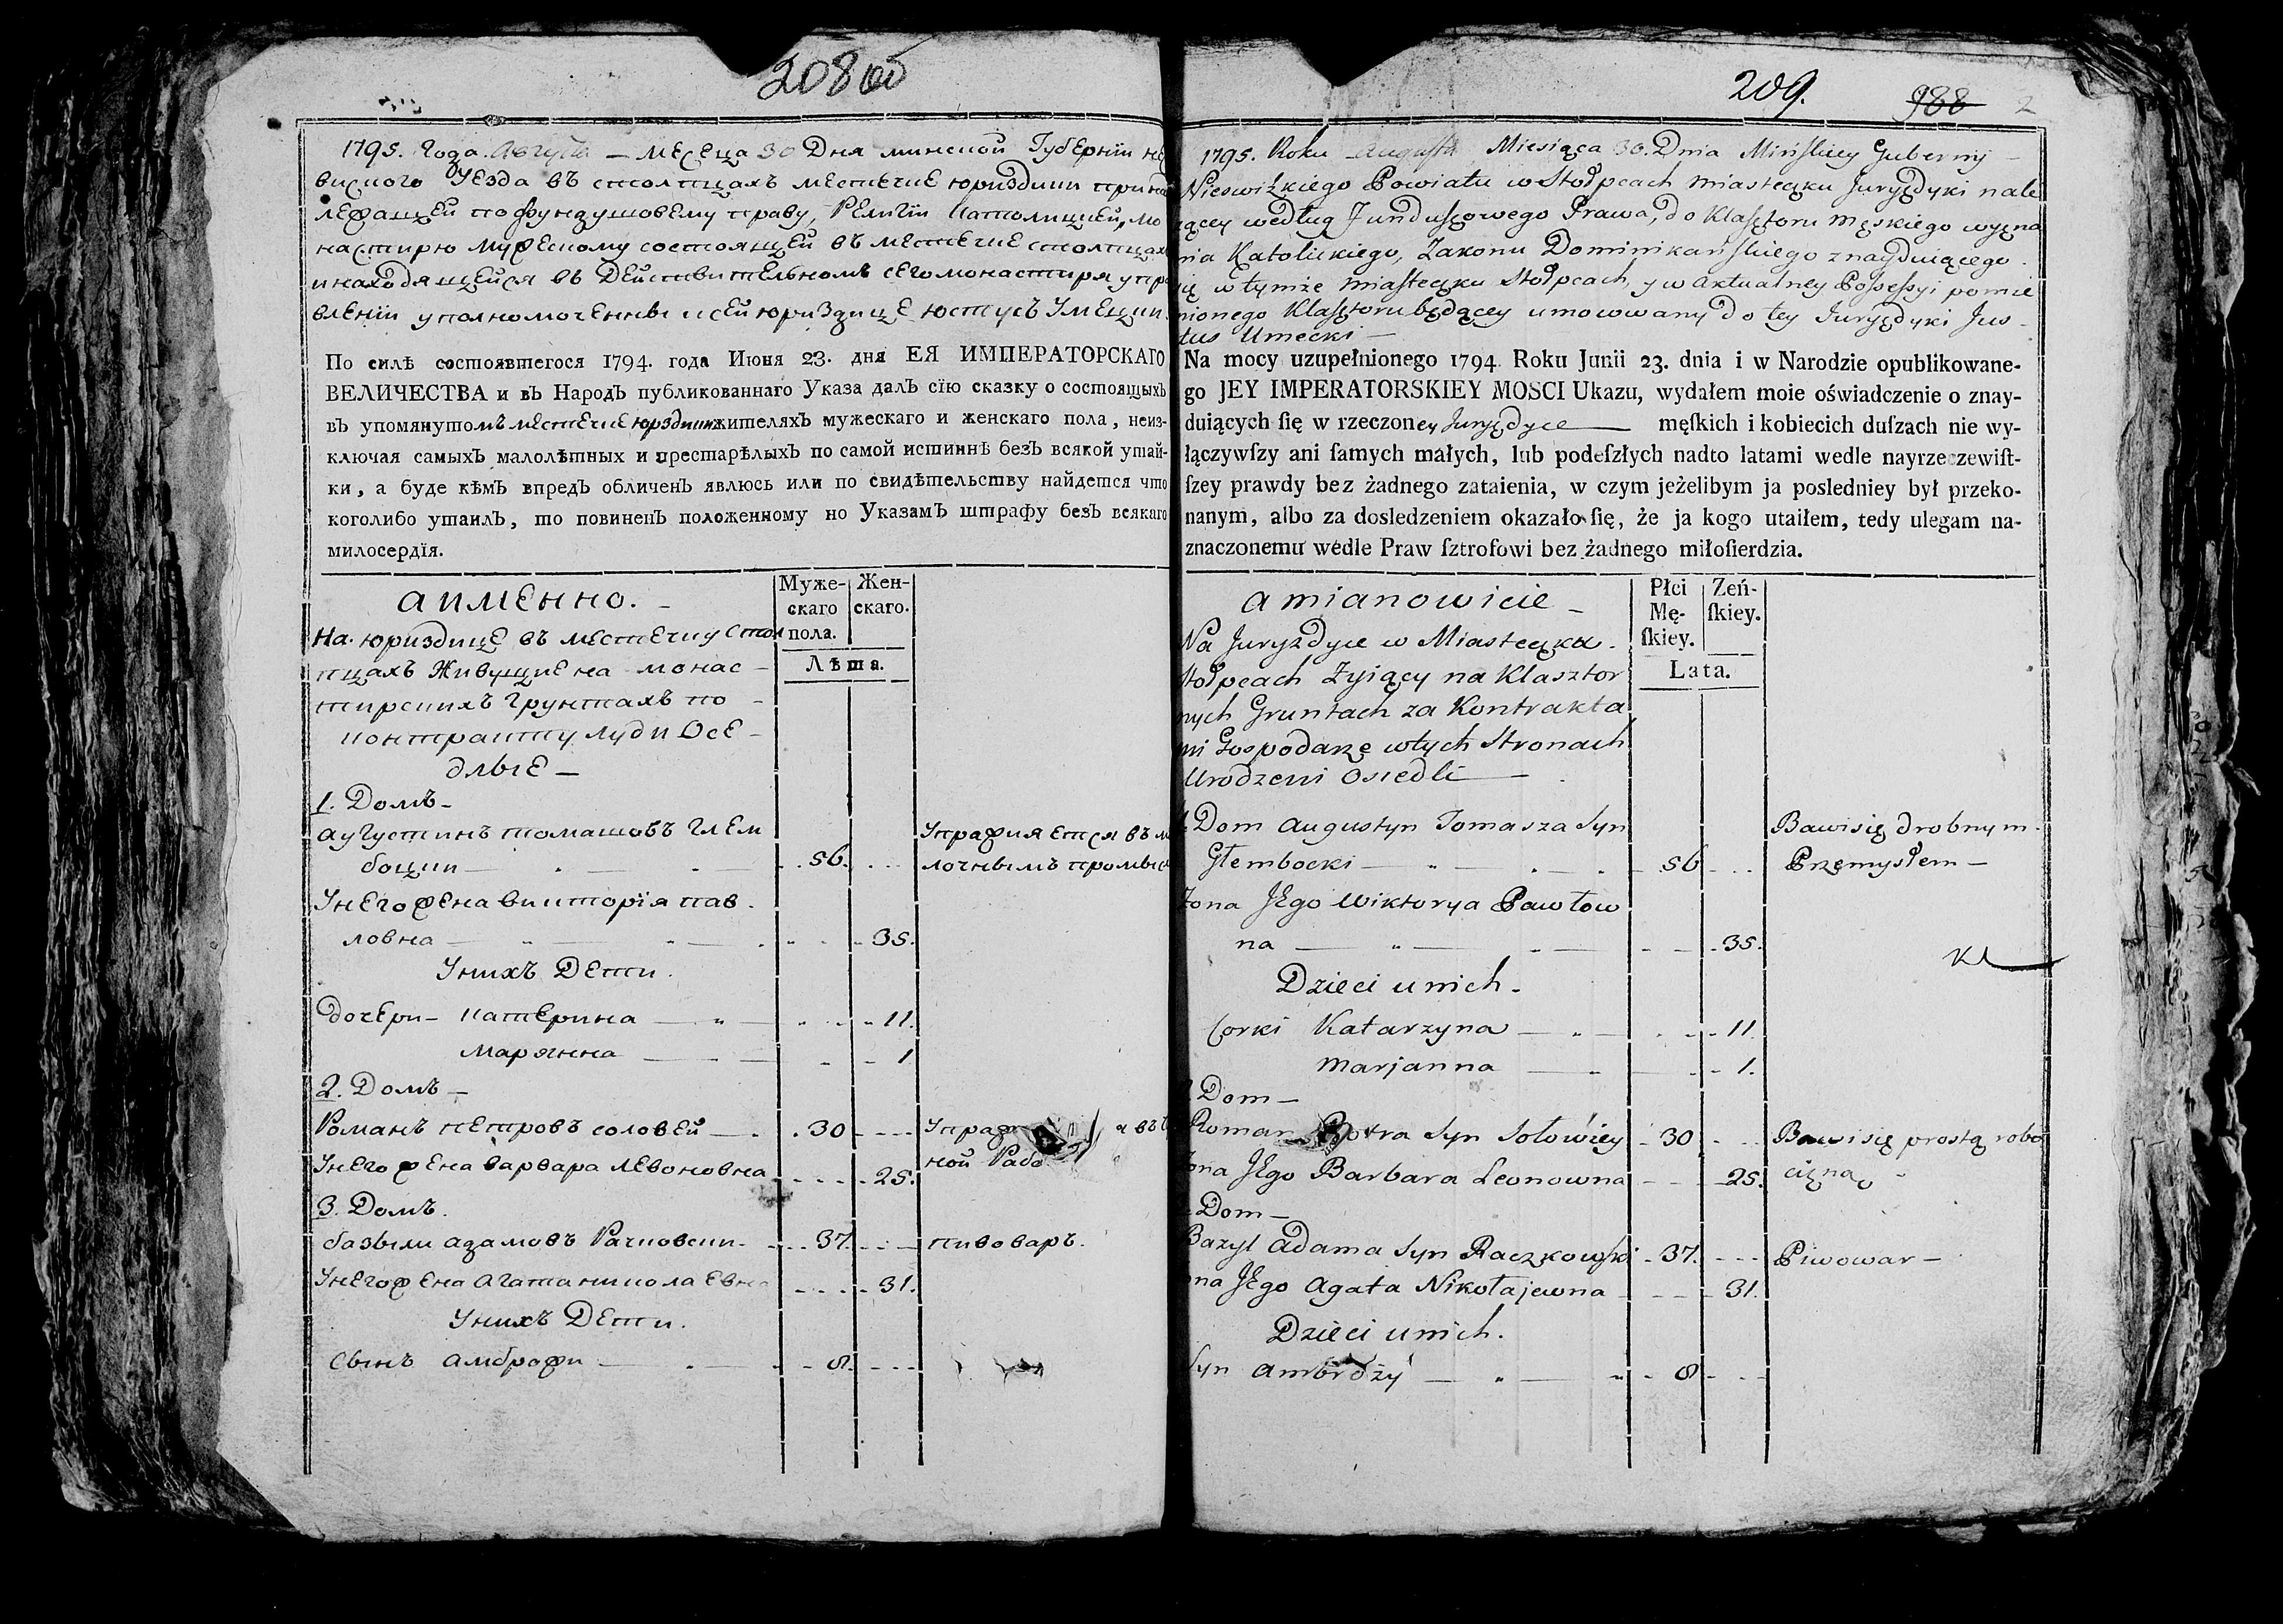 208 об
1795. Года Августа — месеца 30 Дня минской Губернии не
висного Уезда въ столпцахъ местечке юриздики прина
лежащей пофундушовему праву, Религии Католицкей, мо
настирю мужескому состоящей въ местечке столпцах
инаходящейся въ Действителномъ сегомонастиря упра
влении уполномоченны ксей юриздице юстусъ Умецки
По силѣ состоявшегося 1794. года Июня 23. дня ЕЯ ИМПЕРАТОРСКАГО
ВЕЛИЧЕСТВА и въ Народъ публикованнаго Указа далъ сїю сказку о состоящыхъ
въ упомянутомъ местечке юрздики жителяхъ мужескаго и женскаго пола, неиз-
ключая самыхъ малолѣтныхъ и престарѣлыхъ по самой истиннѣ безъ всякой утай-
ки, а буде кѣмъ впредъ обличенъ явлюсь или по свидѣтельству найдется что
коголибо утаилъ, то повиненъ положенному по Указамъ штрафу безъ всякаго
милосердїя.
аименно. —
Муже-
скаго
пола.
Жен-
скаго.
Лѣта.
На юриздице въ местечку стол
пцахъ Живущие на монас —
тирскихъ грунтахъ по —
контракту люди Осе —
длые —
1. Домъ —
августинъ томашовъ глем
боцки — 56.
Упражняется въ м
лочнымъ промыс
Унего жена викторїя пав
ловна — 35.
Унихъ Дети.
дочери — катерина — 11.
марянна — 1
2. Домъ —
Романъ петровъ соловей — 30
Упраж я въ
ной Рабо
Унего жена варвара левоновна 25.
3. Домъ.
базыли адамовъ Рачковски. 37. пивоваръ.
Унего жена агата николаевна 31.
Унихъ Дети.
сынъ амброжи — 8.
209. 988 2
1795. Roku Augusta Miesiąca 30. Dnia Mińskiey Gubernij —
Nieswizkiego Powiatu w Stołpcach miasteczku Juryzdyki nale
żącey według Funduszowego Prawa, do Klasztoru męskiego wyzna
nia Katolickiego, Zakonu Dominikańskiego znayduiącego
się w tymże miasteczku Stołpcach, y w aktualney Possessyi pomie
nionego Klasztoru będącey umocowany do tey Juryzdyki Jus —
tus Umecki —
Na mocy uzupełnionego 1794. Roku Junii 23. dnia i w Narodzie opublikowane-
go JEY IMPERATORSKIEY MOSCI Ukazu, wydałem moie oświadczenie o znay-
duiących ſię w rzeczoney Juryzdyce — męſkich i kobiecich duſzach nie wy-
łączywſzy ani ſamych małych, lub podeſzłych nadto latami wedle nayrzeczewiſt-
ſzey prawdy bez żadnego zataienia, w czym jeżelibym ja posledniey był przeko-
nanym, albo za dosledzeniem okazało się, że ja kogo utaiłem, tedy ulegam na-
znaczonemu wedle Praw ſztrofowi bez żadnego miłoſierdzia.
a mianowicie —
Płci
Mę-
ſkiey.
Zeń-
ſkiey.
Lata.
Na Juryzdyce w Miasteczku
Stołpcach Zyiący na Klasztor
nych Gruntach za Kontrakta
mi Gospodarze w tych Stronach
Urodzeni Osiedli —
Dom Augustyn Tomasza Syn
Bawi się drobnym
Głembocki — 56 Przemysłem —
Zona Jego Wiktorya Pawłow
na — 35.
Kl
Dzieci u nich —
Corki Katarzyna — 11.
Marjanna — 1.
Dom —
Roman Piotra Syn Sołowiey 30 Bawi się prostą robo
ona Jego Barbara Leonowna 25. cizną
Dom —
Bazyl Adama Syn Raczkowski 37. Piwowar —
ona Jego Agata Nikołajewna 31.
Dzieci u nich.
Syn Ambroży — 8